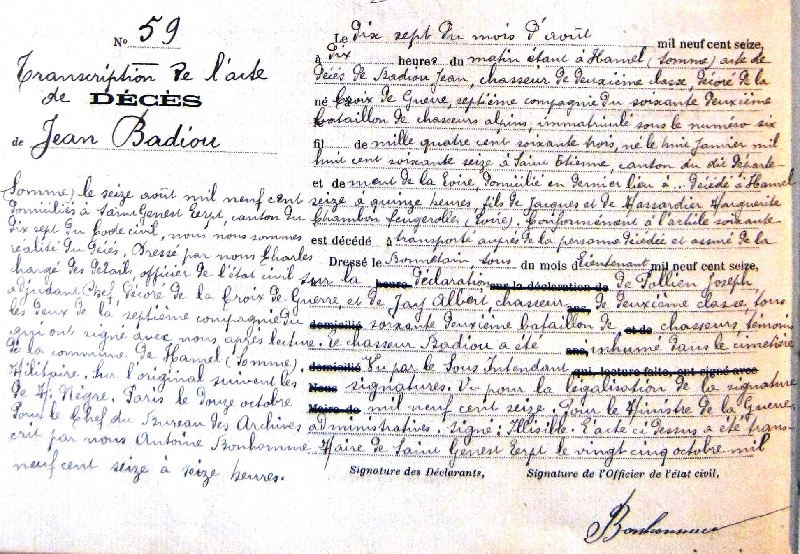 N° 59
Transcription de l'acte
de DÉCÈS
de Jean Badiou
Le dix sept du mois d'août mil neuf cent seize,
à dix heures du matin étant à Hamel (Somme) acte de
décès de Badiou Jean, chasseur de deuxième classe, décoré de la
né Croix de Guerre, septième compagnie du soixante deuxième
bataillon de chasseurs alpins, immatriculé sous le numéro six
fil de mille quatre cent soixante trois, né le huit Janvier mil
huit cent soixante seize à Saint Etienne, canton du dit départe
et de ment de la Loire, domicilié en dernier lieu à .. décédé à Hamel
(Somme) le seize août mil neuf cent seize à quinze heures, fils de Jacques et de Massardier Marguerite
domiciliés à Saint Genest Lerpt, canton du Chambon Feugerolles (Loire). Conformément à l'article soixante
dix sept du Code civil, nous nous sommes est décédé transporté auprès de la personne décédée et assuré de la
réalité du décès. Dressé par nous Charles Dressé le Bonnetain sous du mois lieutenant mil neuf cent seize,
chargé des détails, officier de l'état civil sur la heure déclaration sur la déclaration de de Pollien Joseph
adjudant Chef, décoré de la Croix de Guerre et de Jay Albert chasseur de deuxième classe, tous
les deux de la septième compagnie du domicilié soixante deuxième bataillon de et de chasseurs, témoins
qui ont signé avec nous après lecture. Le chasseur Badiou a été inhumé dans le cimetière
de la commune de Hamel (Somme). domicilié Vu par le Sous Intendant qui, lecture faite, ont signé avec
Militaire. Sur l'original suivent les Nous signatures. Vu pour la légalisation de la signature
de M. Nègre. Paris le douze octobre Maire de mil neuf cent seize. Pour le Ministre de la Guerre
Pour le Chef du Bureau des Archives administratives: signé: Illisible. L'acte ci dessus a été trans-
crit par nous Antoine Bonhomme Maire de Saint Genest Lerpt le vingt cinq octobre mil
neuf cent seize à seize heures.
Signature des Déclarants, Signature de l'Officier de l'état civil,
Bonhomme